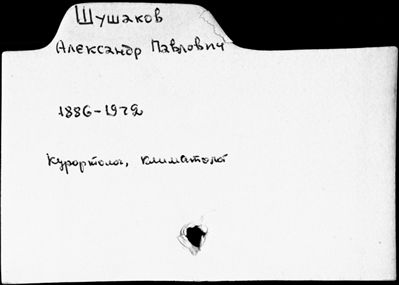 Шушаков
Александр Павлович
1886-1972
Курортолог, климатолог